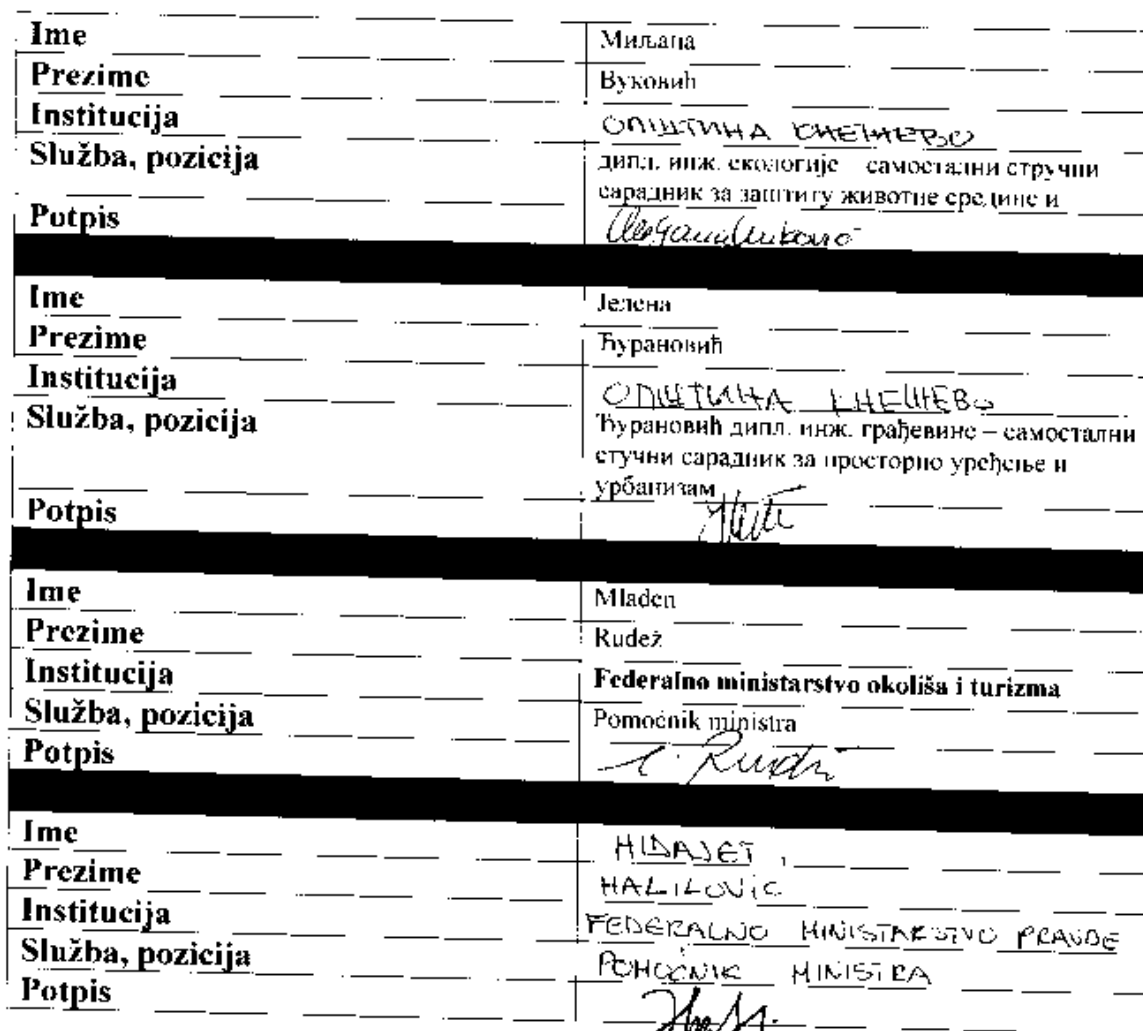 Ime Миљана
Prezime Вуковић
Institucija ОПШТИНА КНЕЖЕВО
Služba, pozicija дипл. инж. екологије – самостални стручни
сарадник за заштиту животне средине и
Potpis
Ime Јелена
Prezime Ђурановић
Institucija ОПШТИНА КНЕЖЕВО
Služba, pozicija Ђурановић дипл. инж. грађевине – самостални
стучни сарадник за просторно уређење и
урбанизам
Potpis
Ime Mladen
Prezime Rudež
Institucija Federalno ministarstvo okoliša i turizma
Služba, pozicija Pomoćnik ministra
Potpis
Ime HIDAJET
Prezime HALILOVIĆ
Institucija FEDERALNO MINISTARSTVO PRAVDE
Služba, pozicija POMOĆNIK MINISTRA
Potpis